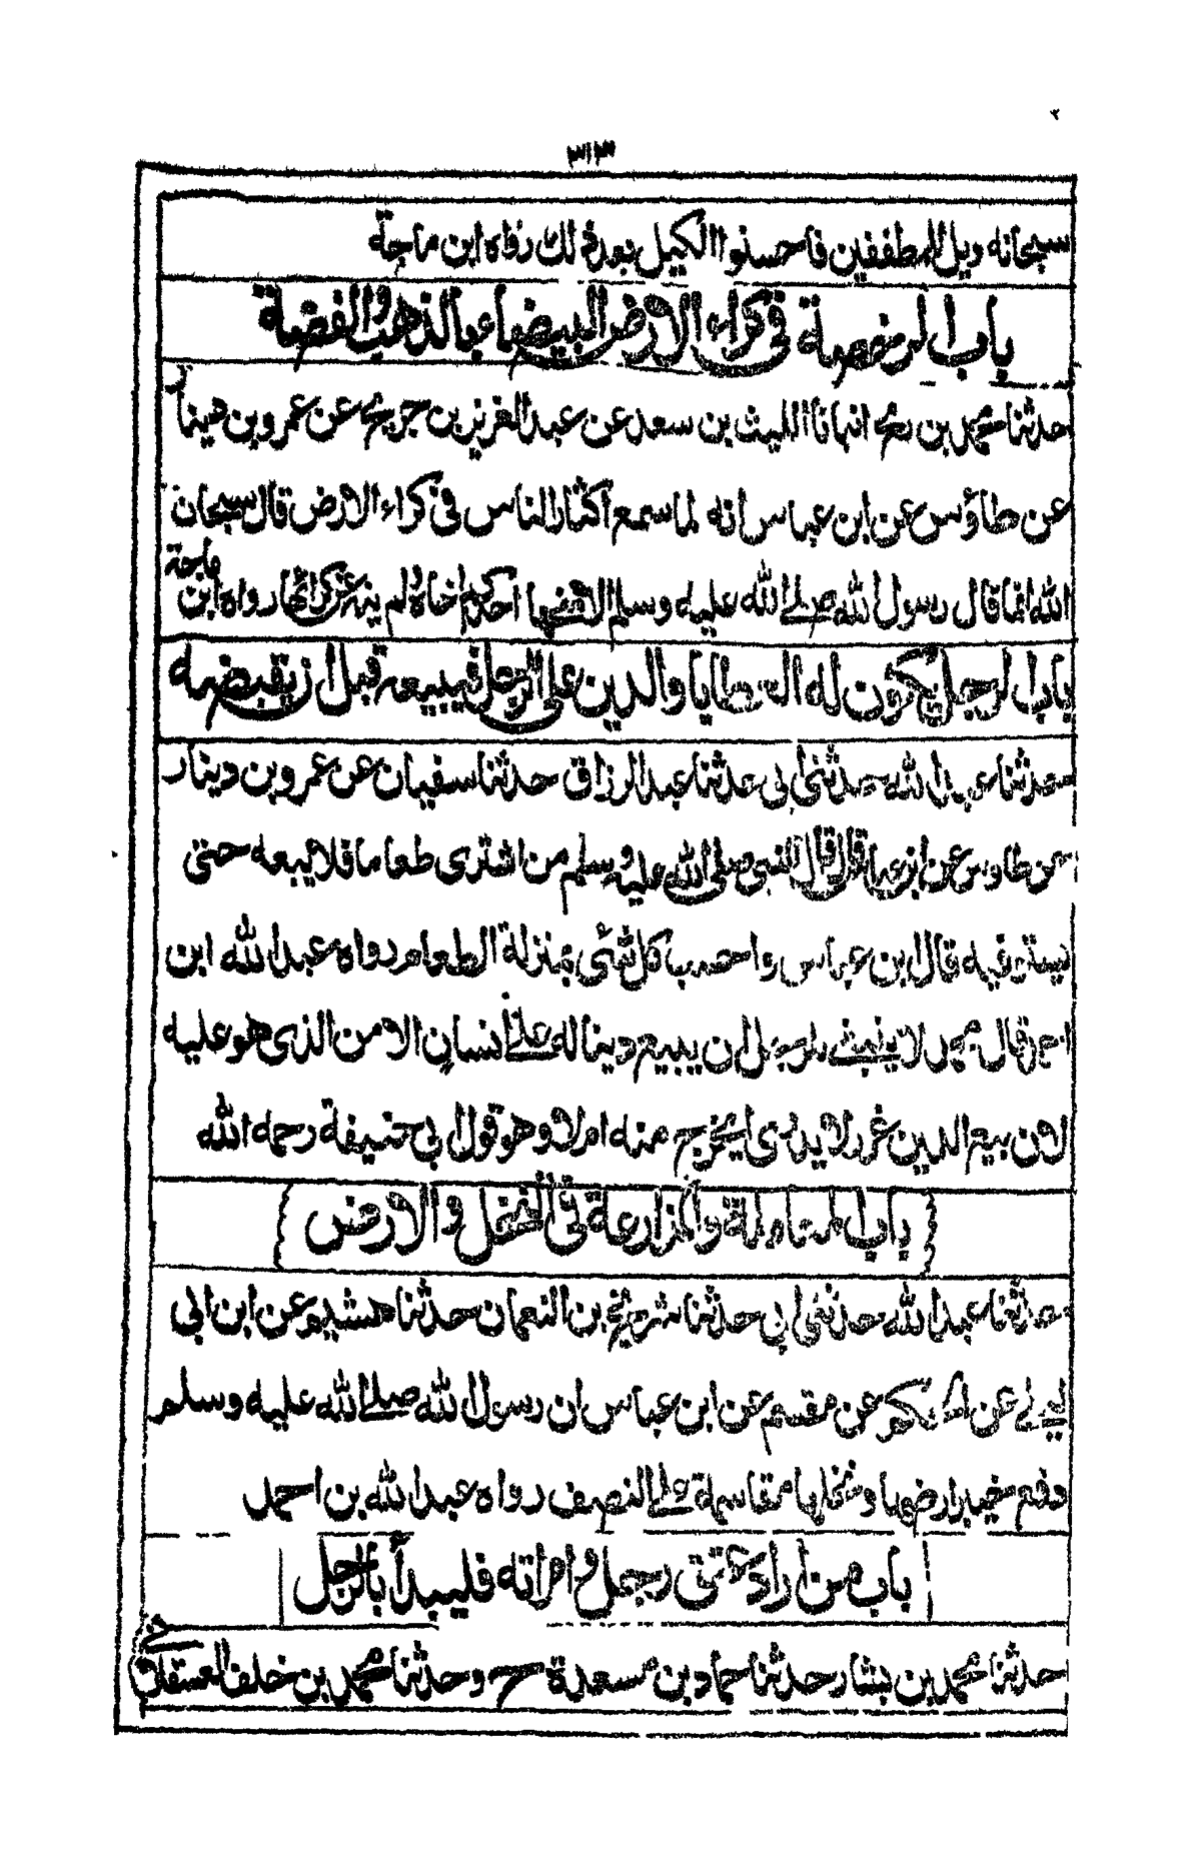 ٣١٣
سبحانه ويل للمطففين فاحسنوا الكيل بعد ذلك رواه ابن ماجة
باب الرخصة في كراء الارض البيضاء بالذهب والفضة
حدثنا محمد بن رمح انبانا الليث بن سعد عن عبد العزيز بن جريج عن عمرو بن دينار
عن طاؤس عن ابن عباس انه لما سمع اكثار الناس في كراء الارض قال سبحان
الله انما قال رسول الله صلے الله عليه وسلم الا منحها احدكم اخاه ولم ينه عن كرائها رواه ابن ماجة
باب الرجل يكون له العطايا والدين على الرجل فيبيعه قبل ان يقبضه
حدثنا عبد الله حدثني ابي حدثنا عبد الرزاق حدثنا سفيان عن عمرو بن دينار
عن طاوس عن ابن عباس قال قال النبي صلى الله عليه وسلم من اشترى طعاما فلا يبعه حتى
يستوفيه قال ابن عباس واحسب كل شئي بمنزلة الطعام رواه عبد الله ابن
احمد قال محمد لا ينبغي للرجل ان يبيع دينا له علے انسان الا من الذى هو عليه
لان بيع الدين غرر لا يدرى ايخرج منه ام لا وهو قول ابي حنيفة رحمه الله
باب المعاملة والمزارعة في النخل والارض
حدثنا عبد الله حدثني ابي حدثنا شريح بن النعمان حدثنا هشيم عن ابن ابي
ليلى عن الحكم عن مقسم عن ابن عباس ان رسول الله صلے الله عليه وسلم
دفع خيبر ارضها ونخلها مقاسمة علے النصف رواه عبد الله بن احمد
باب من اراد عتق رجل وامراته فليبدأ بالرجل
حدثنا محمد بن بشار حدثنا حماد بن مسعدة ح وحدثنا محمد بن خلف العسقلاني